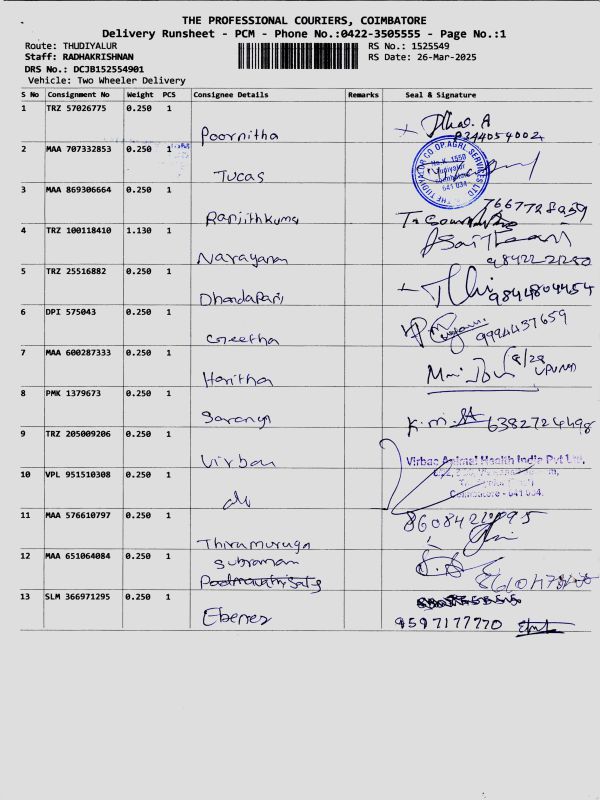 THE PROFESSIONAL COURIERS, COIMBATORE
Delivery Runsheet - PCM - Phone No.:0422-3505555 - Page No.:1
Route: THUDIYALUR RS No.: 1525549
Staff: RADHAKRISHNAN RS Date: 26-Mar-2025
DRS No.: DCJB152554901
Vehicle: Two Wheeler Delivery
S No Consignment No Weight PCS Consignee Details Remarks Seal & Signature
1 TRZ 57026775 0.250 1
Poornitha
2 MAA 707332853 0.250 1
Tucas
THE TUDIYALUR CO OP. AGRL. SERVICES LTD.
No.K. 1550
Tudiyalur
Coimbatore
641 034
3 MAA 869306664 0.250 1
Ranjithkuma
4 TRZ 100118410 1.130 1
Narayanan
5 TRZ 25516882 0.250 1
Dhandapani 9844804454
6 DPI 575043 0.250 1
Geetha 9994437659
7 MAA 600287333 0.250 1
Haritha
8 PMK 1379673 0.250 1
Saranya K.M 6382724498
9 TRZ 205009206 0.250 1
Virbac Virbac Animal Health India Pvt Ltd,
10 VPL 951510308 0.250 1
do Coimbatore - 641 034.
11 MAA 576610797 0.250 1
Thirumuruga
12 MAA 651064084 0.250 1
Subraman
13 SLM 366971295 0.250 1
Ebenez 9597177770